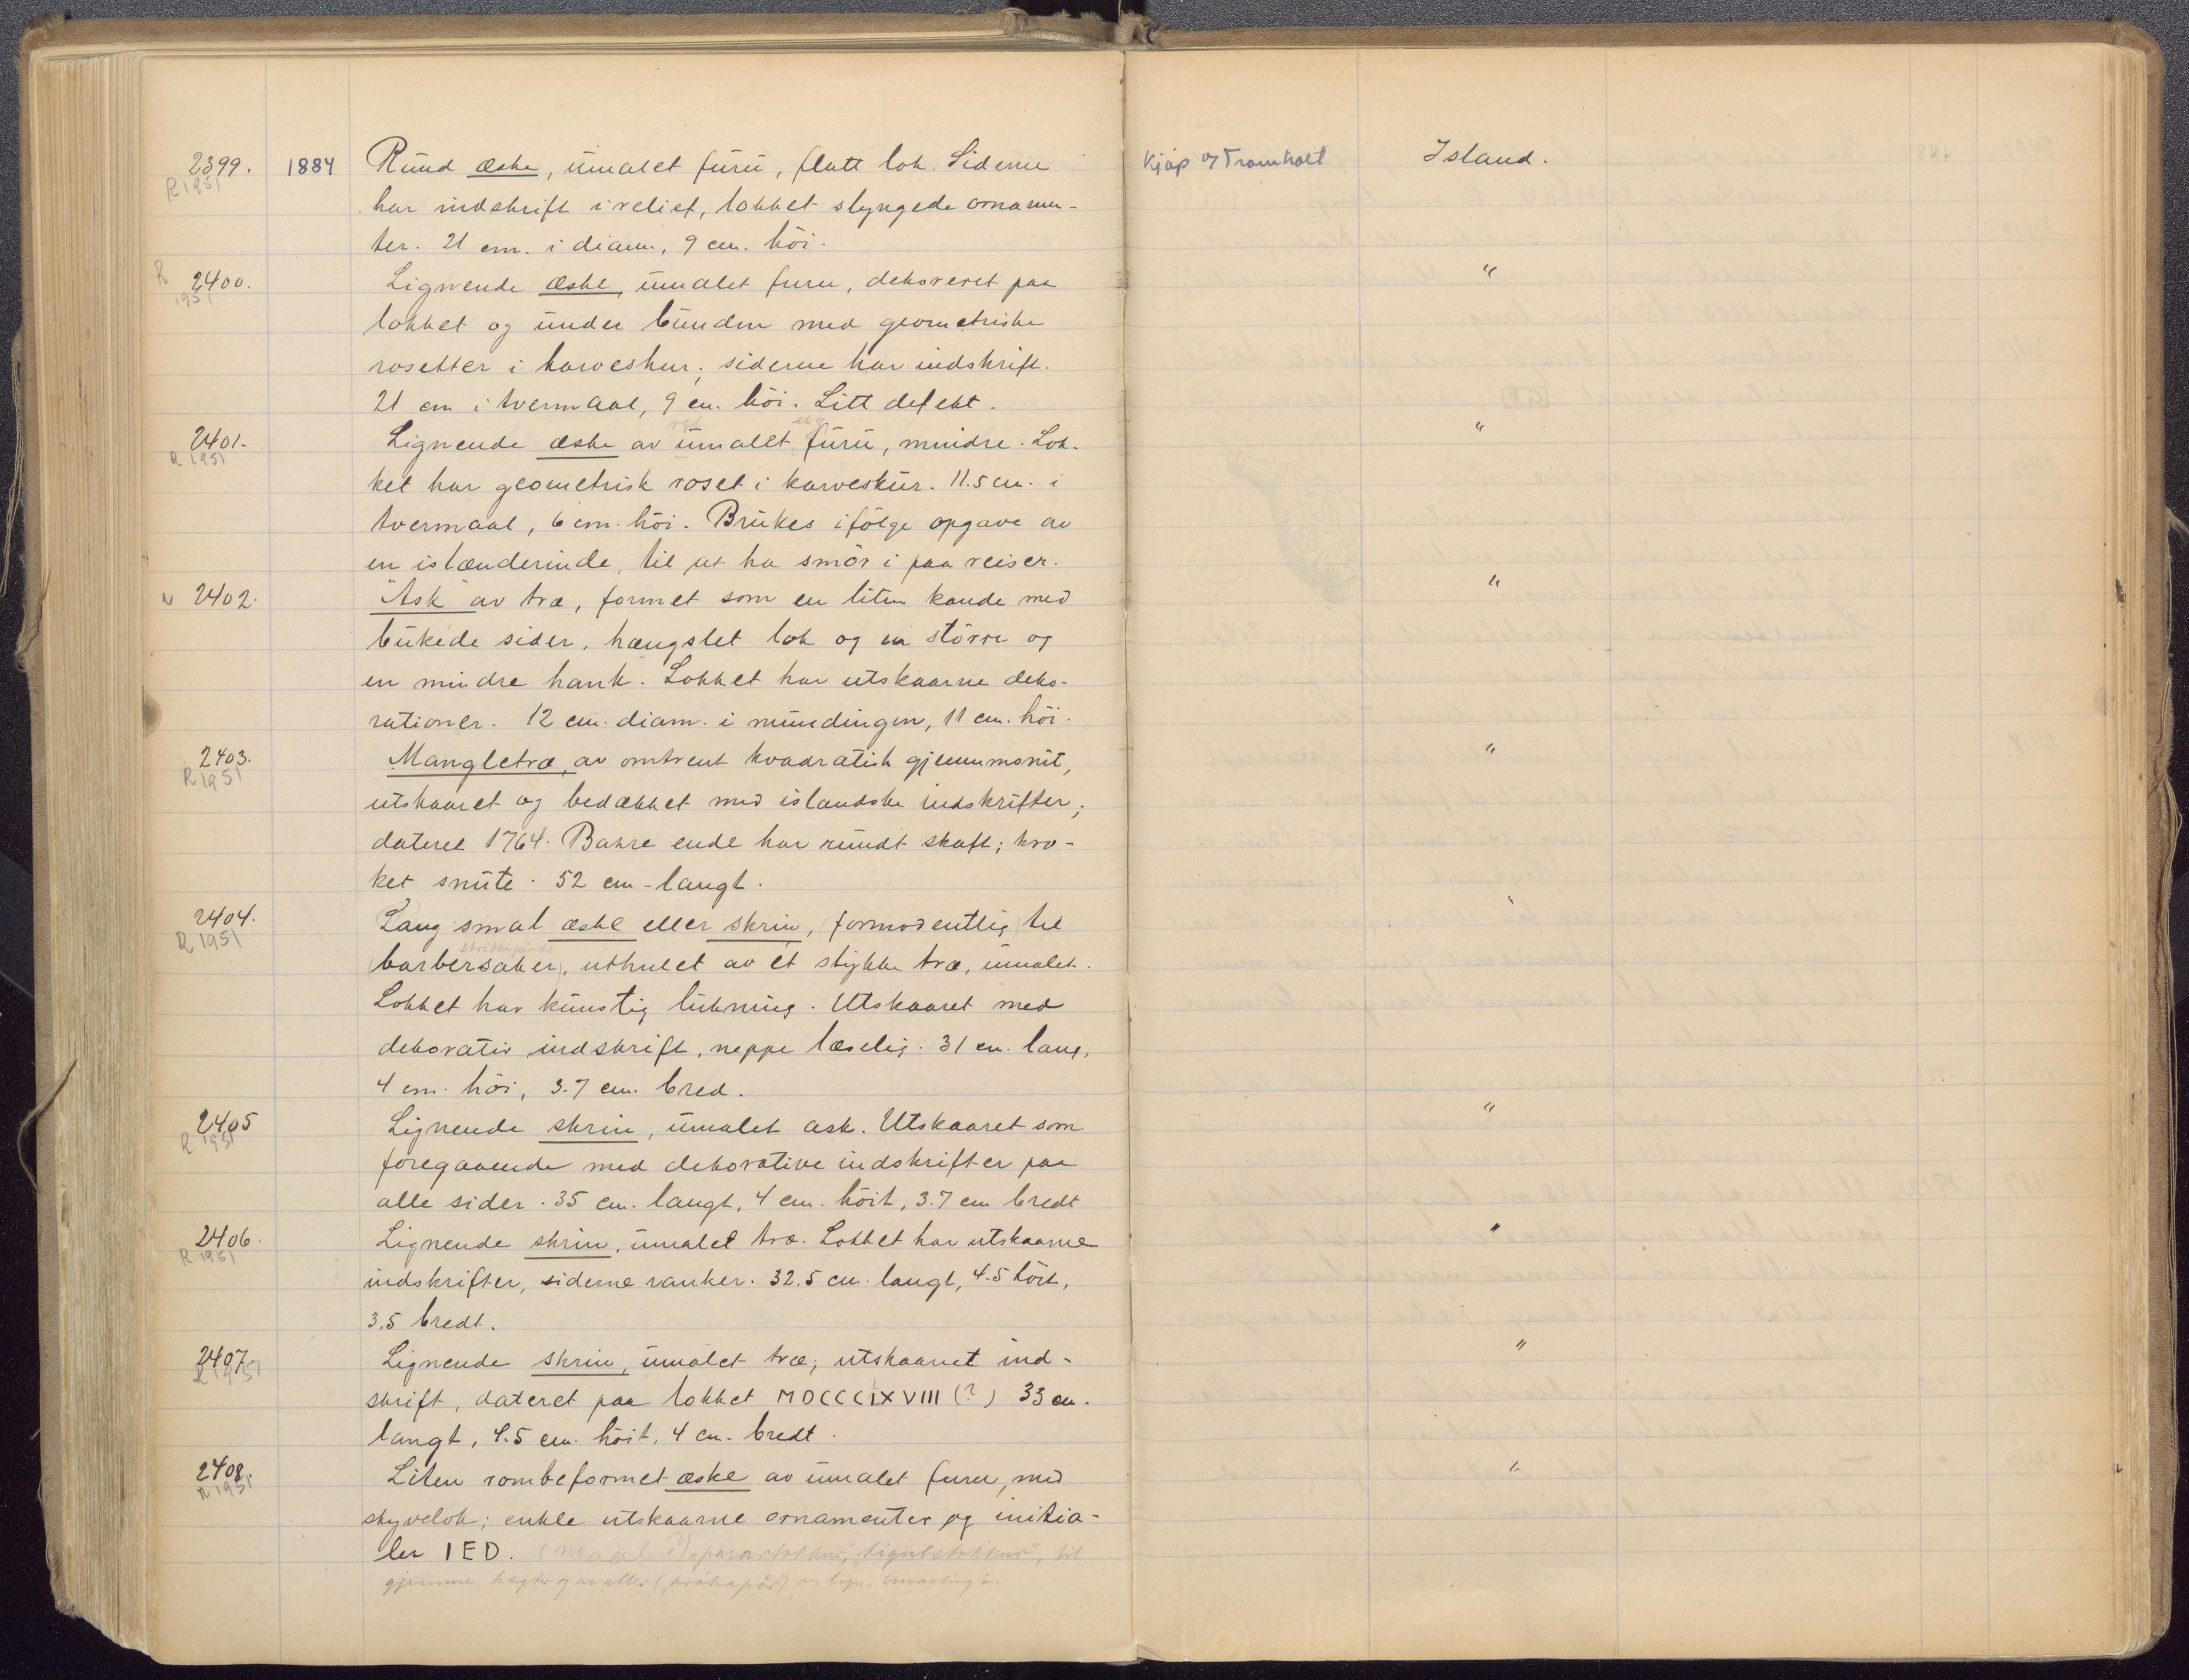 2399. 1884 Rund æske, umalet furu, flatt lok. Siderne Kjøp af Tromholt Island.
R 1951
har indskrift i relief, lokket slyngede ornamen-
ter. 21 cm. i diam., 9 cm. höi.
R 2400. Lignende æske, umalet furu, dekoreret paa "
1951
lokket og under bunden med geometriske
rosetter i karveskur; siderne har indskrift.
21 cm i tvermaal, 9 cm. höi. Litt defekt.
2401. Lignende æske av umalet furu, mindre. Lok- "
R 1951
ket har geometrisk roset i karveskur. 11.5 cm. i
tvermaal, 6 cm. höi. Brukes ifölge opgave av
en islænderinde, til at ha smör i paa reiser.
N 2402. "Ask" av træ, formet som en liten kande med "
bukede sider, hængslet lok og en större og
en mindre hank. Lokket har utskaarne deko-
rationer. 12 cm. diam. i mundingen, 11 cm. höi.
2403. Mangletræ, av omtrent kvadratisk gjennemsnit, "
R 1951
utskaaret og bedækket med islandske indskrifter;
dateret 1764. Bakre ende har rundt skaft; kro-
ket snute. 52 cm. langt.
2404. Lang smal æske eller skrin, formodentlig til "
R 1951
strikkepinde
(barbersaker), uthulet av ét stykke træ, umalet.
Lokket har kunstig lukning. Utskaaret med
dekorativ indskrift, neppe læselig. 31 cm. lang,
4 cm. höi, 3.7 cm. bred.
2405 Lignende skrin, umalet ask. Utskaaret som "
R 1951
foregaaende med dekorative indskrifter paa
alle sider. 35 cm. langt, 4 cm. höit, 3.7 cm bredt
2406. Lignende skrin, umalet træ. Lokket har utskaarne "
R 1951
indskrifter, siderne ranker. 32.5 cm. langt, 4.5 höit,
3.5 bredt.
2407. Lignende skrin, umalet træ; utskaaret ind- "
R 1951
skrift, dateret paa lokket MDCCCIXVIII (?) 33 cm.
langt, 4.5 cm. höit, 4 cm. bredt.
2408. Liten rombeformet æske av umalet furu, med "
R 1951
skyvelok; enkle utskaarne ornamenter og initia-
ler IED. til
gjemme hegter og o. lign. i.